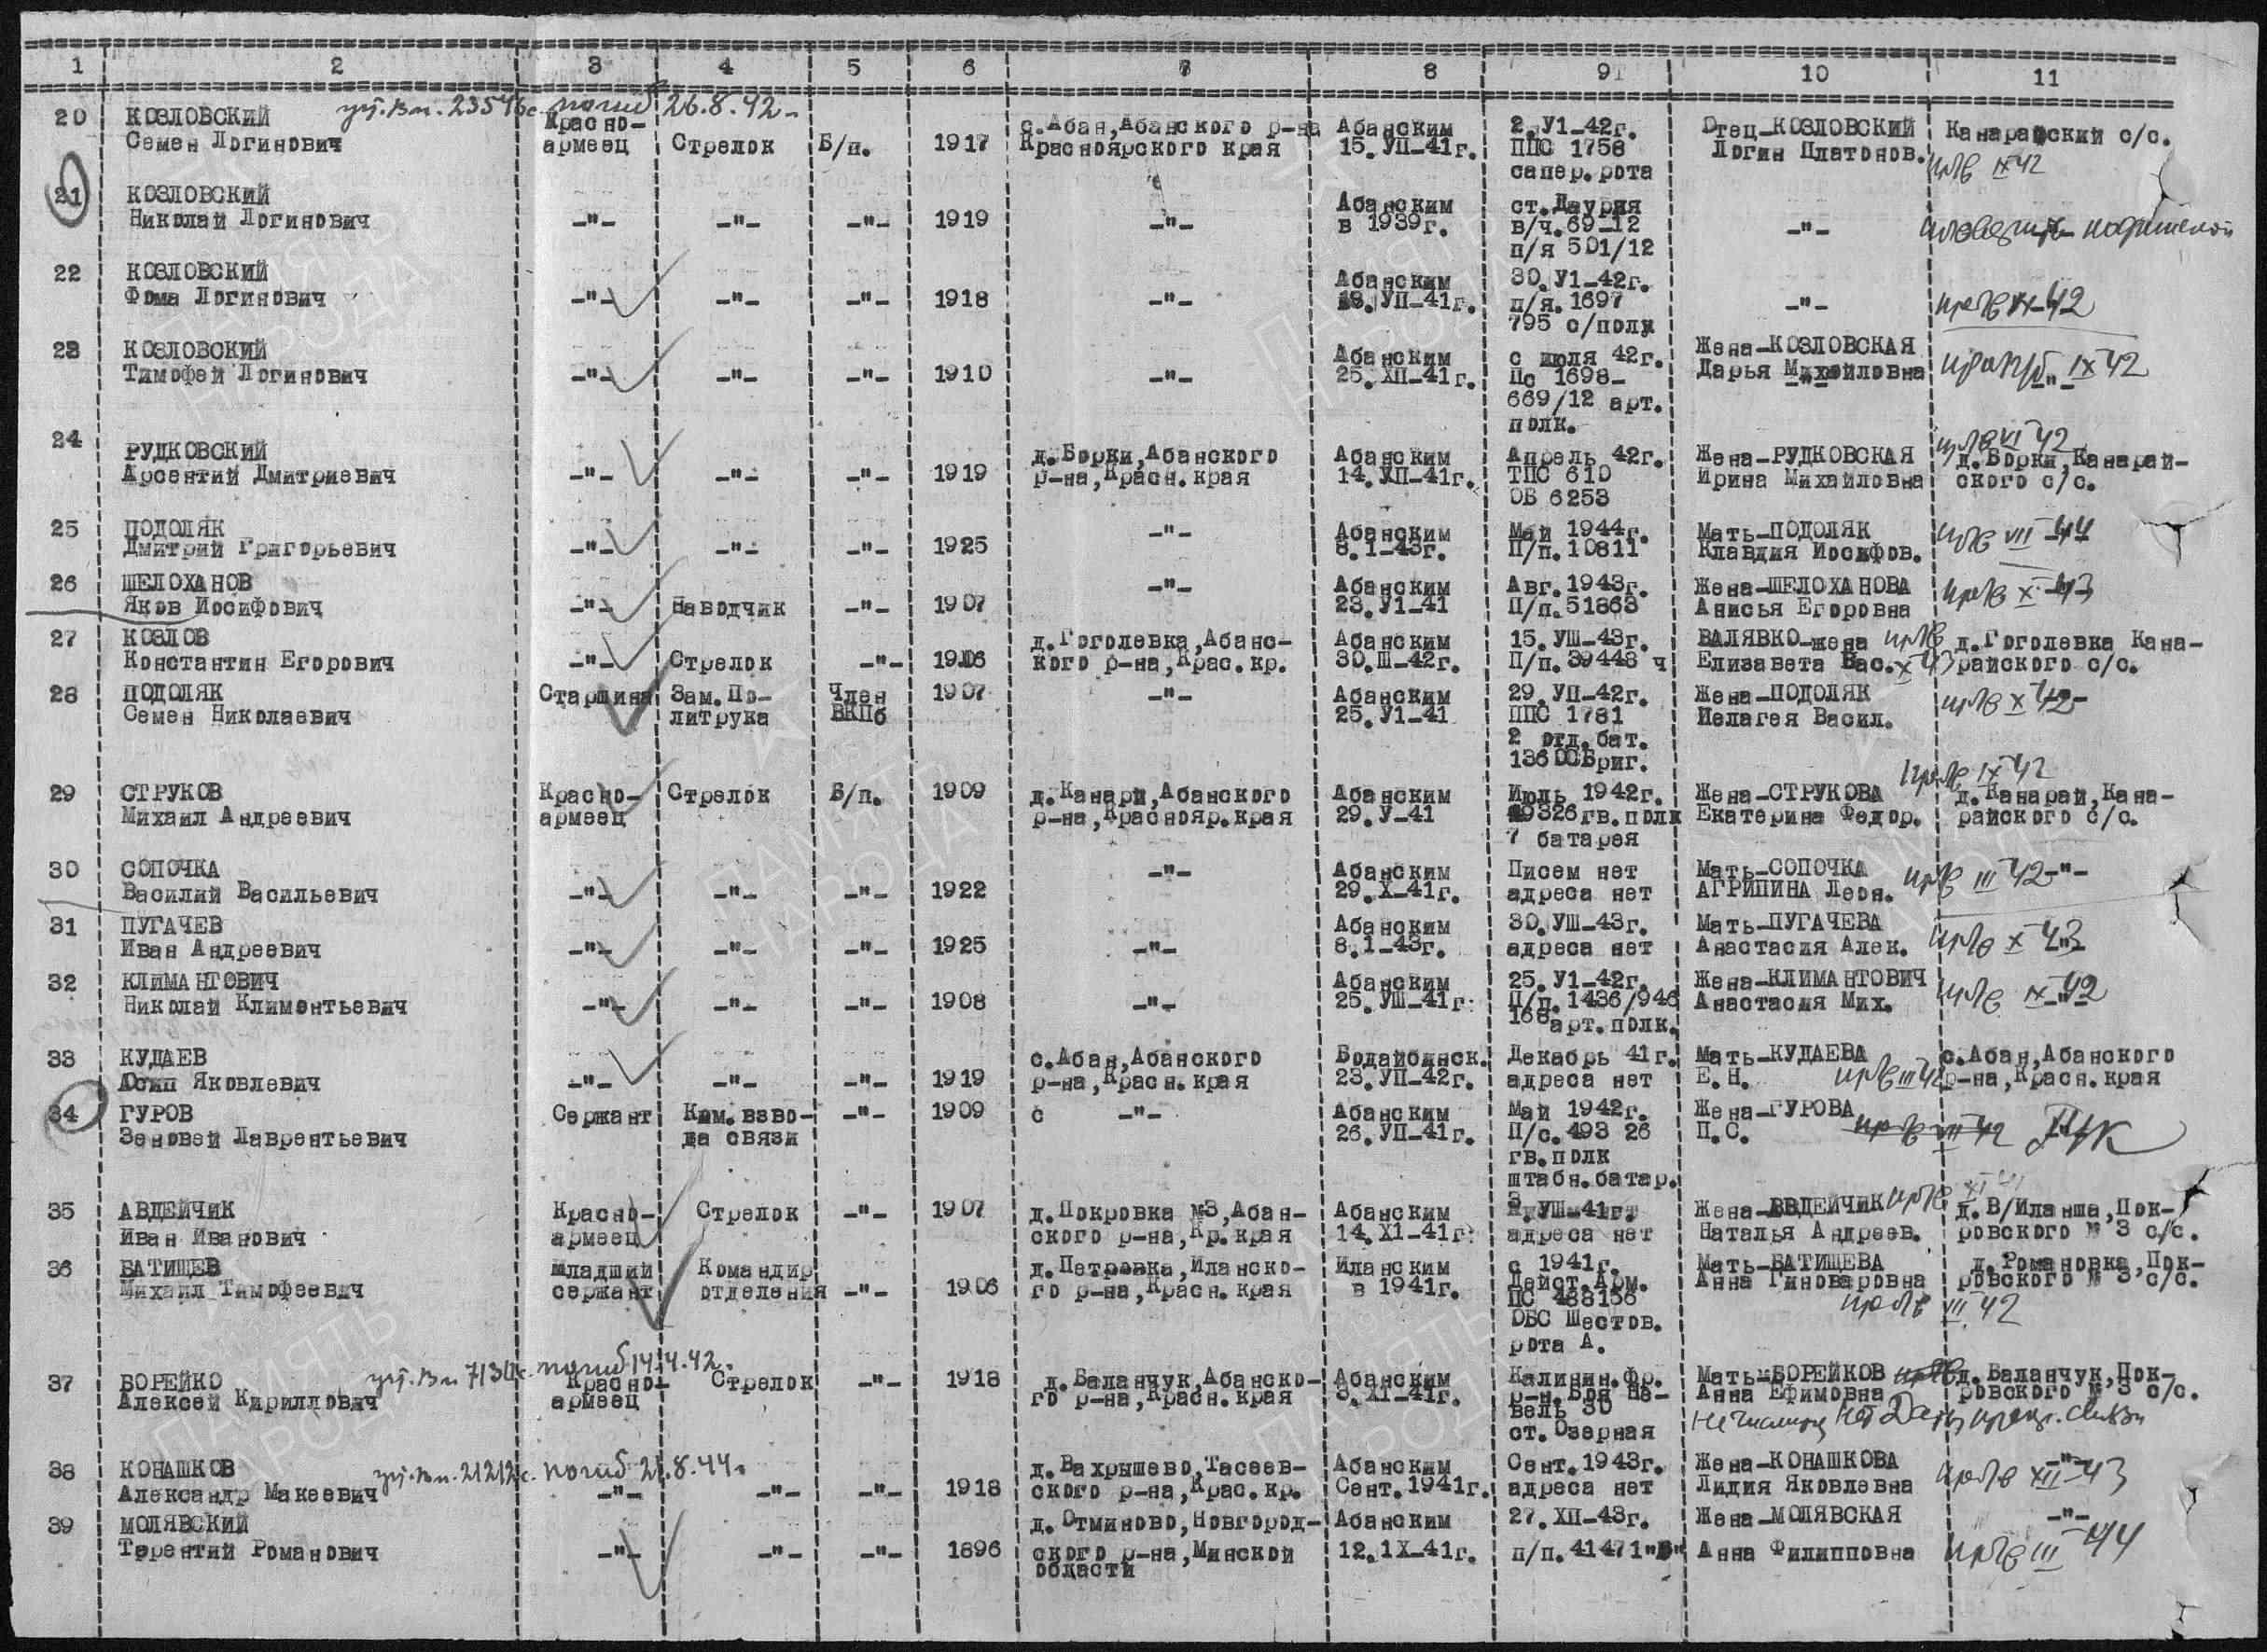 1 2 3 4 5 6 7 8 9 10 11
20 КОЗЛОВСКИЙ погиб 26.8.42 Красно- с.Абан,Абанского р-на Абанским 2.У1-42г. Отец-КОЗЛОВСКИЙ Канарайский с/с.
Семен Логинович армеец Стрелок Б/п. 1917 Красноярского края 15.УП-41г. ППС 1758 Логин Платонов.
сапер.рота IX 42
21 КОЗЛОВСКИЙ Абанским ст.Даурия
Николай Логинович -"- -"- -"- 1919 -"- в 1939г. в/ч.69-12 -"-
п/я 501/12
22 КОЗЛОВСКИЙ Абанским 30.У1-42г.
Фома Логинович -"- -"- -"- 1918 -"- УП-41г. п/я.1697 -"-
795 с/полк
23 КОЗЛОВСКИЙ Абанским с июля 42г. Жена-КОЗЛОВСКАЯ
Тимофей Логинович -"- -"- -"- 1910 -"- 25.ХП-41г. Пс 1698- Дарья Михайловна -"- IX 42
669/12 арт.
полк.
24 РУДКОВСКИЙ д.Борки,Абанского Абанским Апрель 42г. Жена-РУДКОВСКАЯ д.Борки,Канарай-
Арсентий Дмитриевич -"- -"- -"- 1919 р-на,Красн.края 14.ХП-41г. ТПС 610 Ирина Михайловна ского с/с.
ОБ 6253
25 ПОДОЛЯК -"- Абанским Май 1944г. Мать-ПОДОЛЯК VII-44
Дмитрий Григорьевич -"- -"- -"- 1925 8.1-43г. П/п.10811 Клавдия Иосифов.
26 ШЕЛОХАНОВ -"- Абанским Авг.1943г. Жена-ШЕЛОХАНОВА X-43
Яков Иосифович -"- Наводчик -"- 1907 23.У1-41 П/п.51863 Анисья Егоровна
27 КОЗЛОВ д.Гоголевка,Абанс- Абанским 15.УШ-43г. ВАЛЯВКО-жена д.Гоголевка Кана-
Константин Егорович -"- Стрелок -"- 1906 кого р-на,Крас.кр. 30.Ш-42г. П/п.39448 ч Елизавета Вас. X 43 райского с/с.
28 ПОДОЛЯК Старшина Зам.По- Член 1907 -"- Абанским 29.УП-42г. Жена-ПОДОЛЯК X 42
Семен Николаевич литрука ВКПб 25.У1-41 ППС 1781 Пелагея Васил.
2 отд.бат.
136 ОСБриг.
IX 42
29 СТРУКОВ Красно- Стрелок Б/п. 1909 д.Канарй,Абанского Абанским Июль 1942г. Жена-СТРУКОВА д.Канарай,Кана-
Михаил Андреевич армеец р-на,Краснояр.края 29.У-41 326гв.полк Екатерина Федор. райского с/с.
7 батарея
30 СОПОЧКА -"- Абанским Писем нет Мать-СОПОЧКА III 42 -"-
Василий Васильевич -"- -"- -"- 1922 29.Х-41г. адреса нет АГРИПИНА Леон.
31 ПУГАЧЕВ Абанским 30.УШ-43г. Мать-ПУГАЧЕВА
Иван Андреевич -"- -"- -"- 1925 -"- 8.1-43г. адреса нет Анастасия Алек. X 43
32 КЛИМАНТОВИЧ Абанским 25.У1-42г. Жена-КЛИМАНТОВИЧ
Николай Климентьевич -"- -"- -"- 1908 -"- 25.УШ-41г. П/п.1436/946 Анастасия Мих. IX 42
168арт.полк.
33 КУДАЕВ с.Абан,Абанского Бодайбинск. Декабрь 41г. Мать-КУДАЕВА с.Абан,Абанского
Осип Яковлевич -"- -"- -"- 1919 р-на,Красн.края 23.УП-42г. адреса нет Е.Н. III 42 р-на,Красн.края
34 ГУРОВ Сержант Ком.взво- -"- 1909 с -"- Абанским Май 1942г. Жена-ГУРОВА
Зеновей Лаврентьевич да связи 26.УП-41г. П/с.493 26 П.С. VII 42
гв.полк
штабн.батар.
35 АВДЕЙЧИК Красно- Стрелок -"- 1907 д.Покровка №3,Абан- Абанским 3.УШ-41г. Жена-АВДЕЙЧИК д.В/Иланша,Пок-
Иван Иванович армеец ского р-на,Кр.края 14.Х1-41г. адреса нет Наталья Андреев. ровского № 3 с/с.
36 БАТИЩЕВ Младший Командир д.Петровка,Иланско- Иланским с 1941г. Мать-БАТИЩЕВА д.Романовка,Пок-
Михаил Тимофеевич сержант отделения -"- 1906 го р-на,Красн.края в 1941г. Дейст.Арм. Анна Гиноваровна ровского № 3 с/с.
ПС 488156 III 42
ОБС Шестов.
рота А.
погиб 14.4.42.
37 БОРЕЙКО Красно- Стрелок -"- 1918 д.Баланчук,Абанско- Абанским Калинин.фр. Мать-БОРЕЙКОВ д.Баланчук,Пок-
Алексей Кириллович армеец го р-на,Красн.края 3.Х1-41г. р-н.Боя Не- Анна Ефимовна ровского № 3 с/с.
вель 30
ст.Озерная
38 КОНАШКОВ погиб 21.8.44. д.Вахрышево,Тасеев- Абанским Сент.1943г. Жена-КОНАШКОВА -"-
Александр Макеевич -"- -"- -"- 1918 ского р-на,Крас.кр. Сент.1941г. адреса нет Лидия Яковлевна XII-43
39 МОЛЯВСКИЙ д.Отминово,Новгород- Абанским 27.ХП-43г. Жена-МОЛЯВСКАЯ -"-
Терентий Романович -"- -"- -"- 1896 ского р-на,Минской 12.1Х-41г. п/п.41471"Б" Анна Филипповна III 44
области
ПАМЯТЬ
НАРОДА